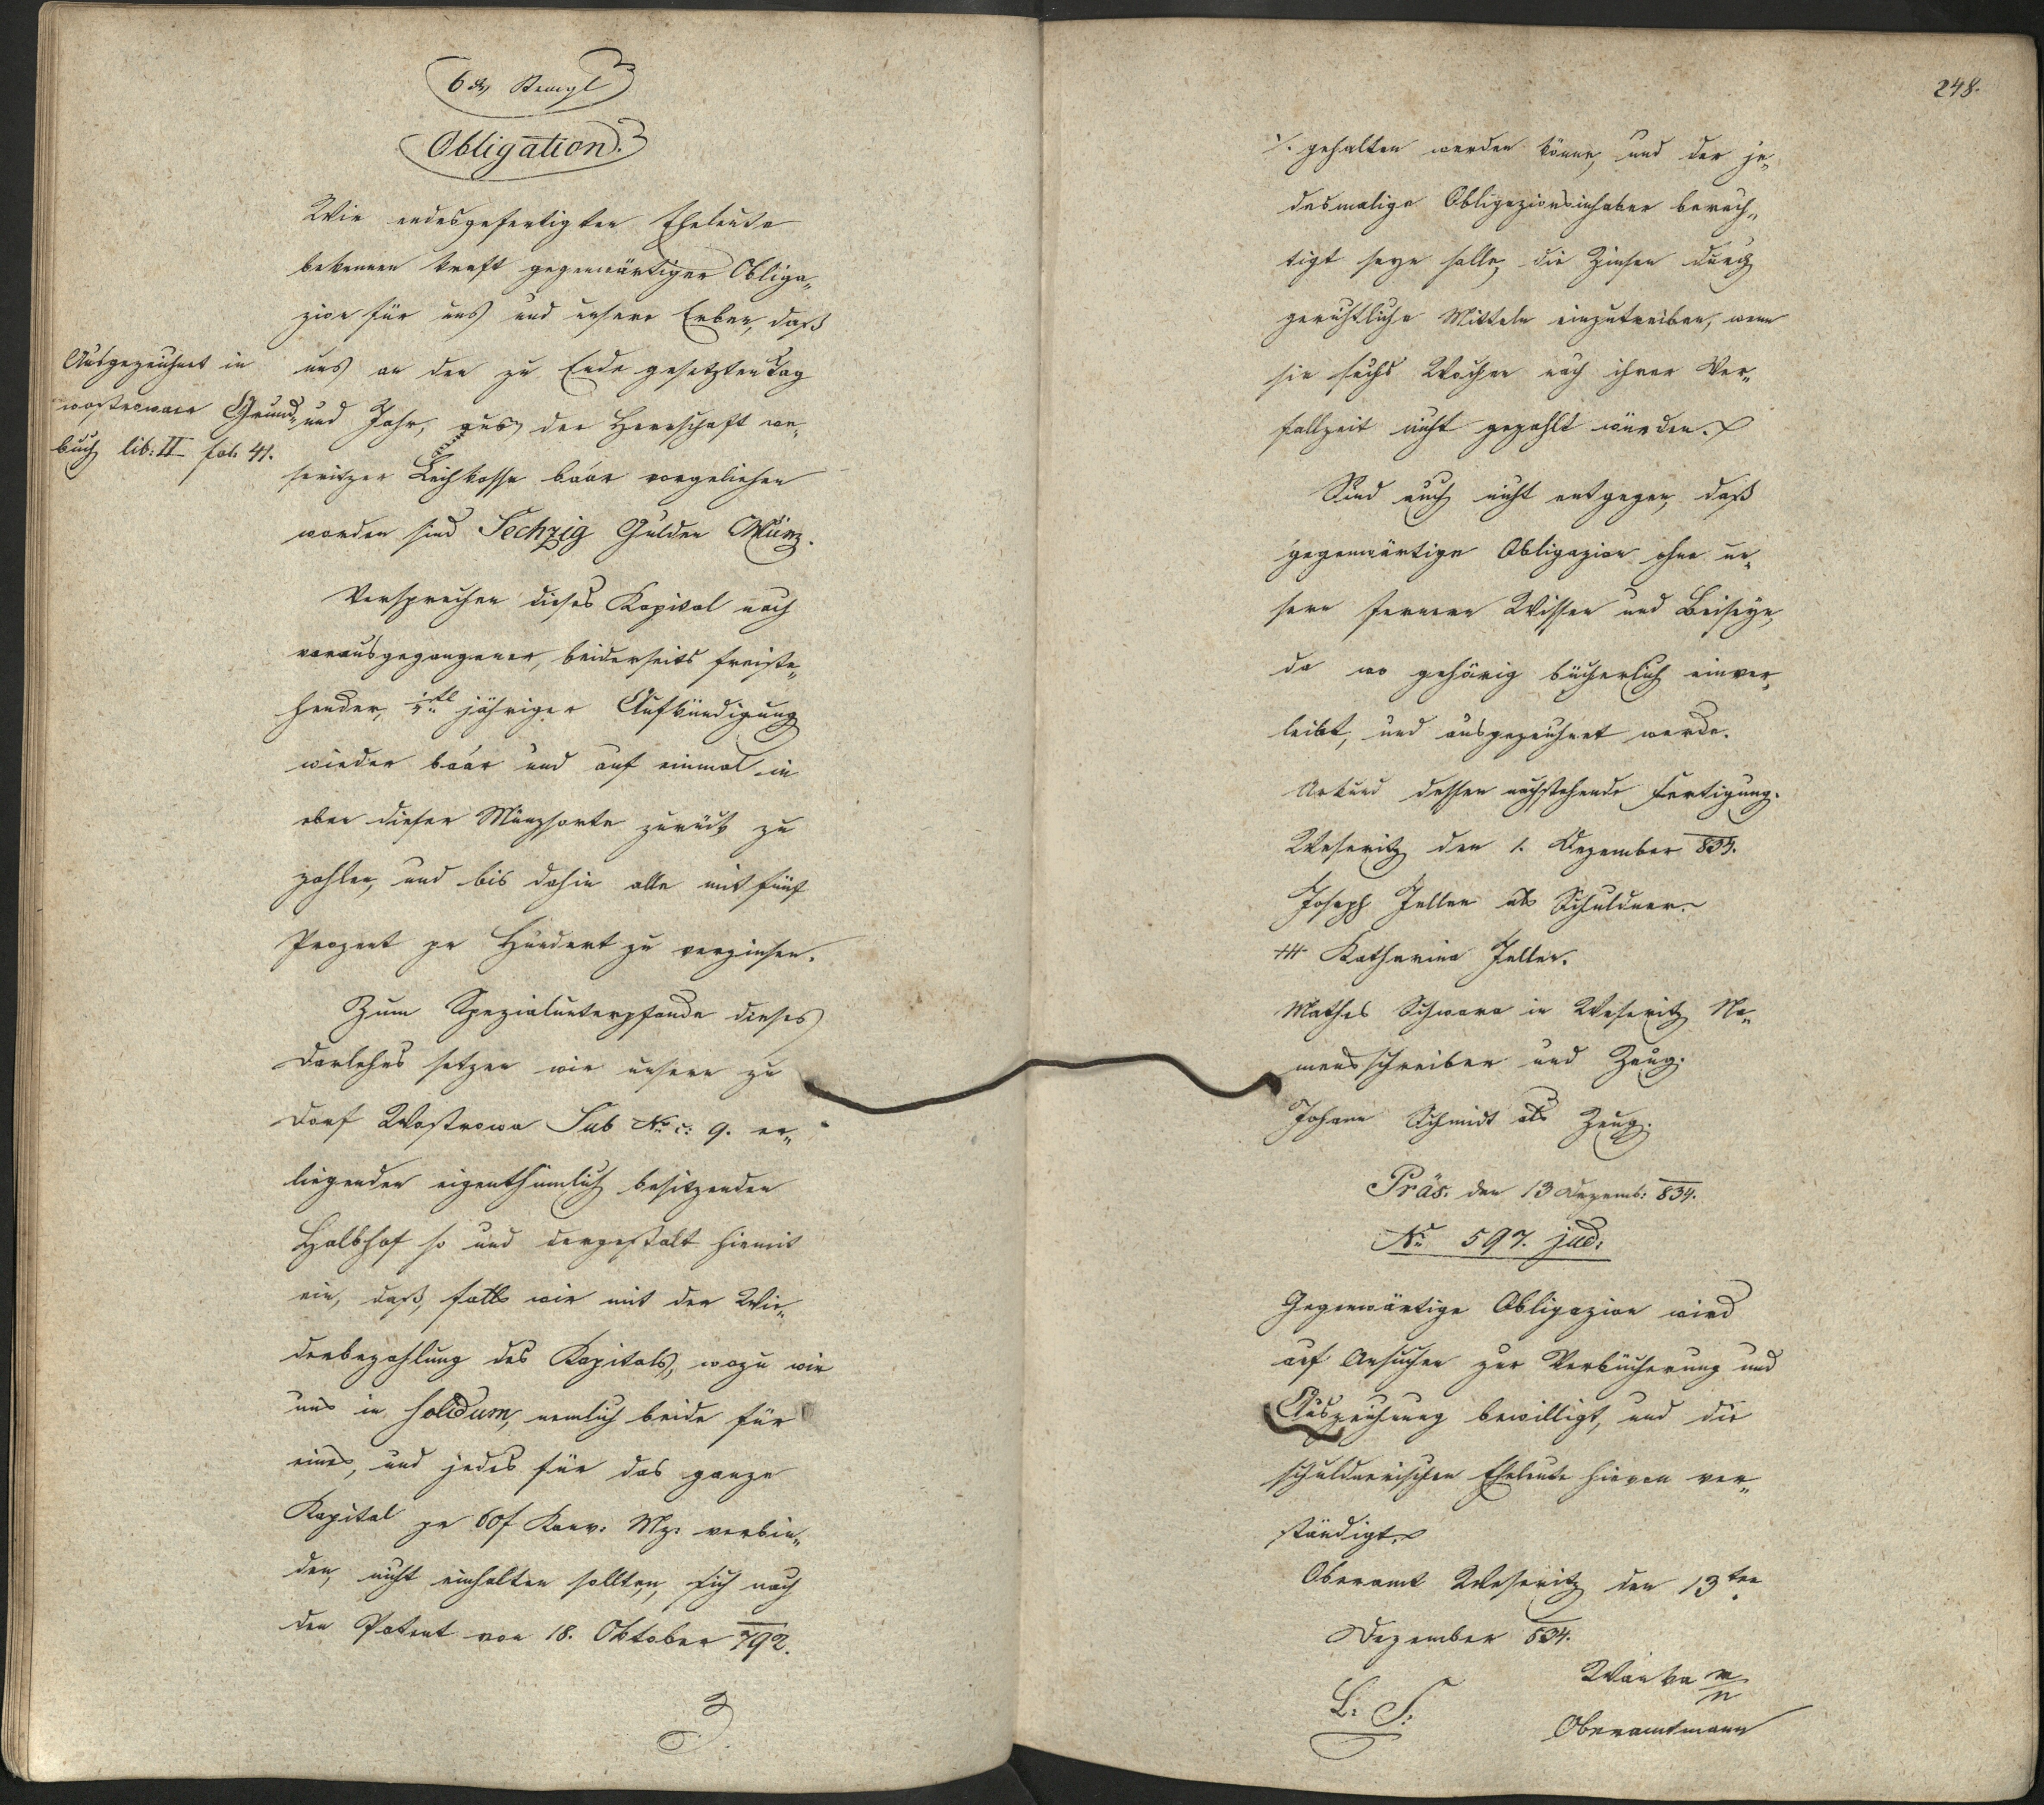 6 xr Stempl
Obligation.
Wir endesgefertigten Eheleute
bekennen kraft gegenwärtiger Obliga„
zion für uns und unsere Erben, daß
uns an den zu Ende gesetzten Tag
und Jahr, aus der Herrschaft we„
seritzer Leihkasse baar vorgeliehen
worden sind Sechzig Gulden Münz.
Ausgezeichnet in
wostrowaer Grund„
buch lib: II fol. 41.
Versprechen dieses Kapital nach
vorausgegangener, beiderseits freiste„
hender, jähriger Aufkündigung
wieder baar und auf einmal in
eben dieser Münzsorte zurück zu
zahlen, und bis dahin alle mit fünf
Prozent pr Hundert zu verzinsen.
Zum Spezialunterpfande dieses
Darlehns setzen wir unsern zu
Dorf Wostrowa Sub No c: 9. er„
liegenden eigenthümlich besitzenden
Halbhof so und dergestalt hiemit
ein, daß, falls wir mit der Wie„
derbezahlung des Kapitals, wozu wir
uns in solidum, nemlich beide für
eines, und jedes für das ganze
Kapital pr 60f Konv: Mz: verbin„
den, nicht einhalten sollten, sich nach
den Patent von 18. Oktober 792.
248.
./. gehalten werden könne, und der je„
desmalige Obligazionsinhaber berech„
tigt seyn solle, die Zinsen durch
gerichtliche Mitteln einzutreiben, wenn
sie sechs Wochen nach ihrer Ver„
fallzeit nicht gezahlt würden.
Sind auch nicht entgegen, daß
gegenwärtige Obligazion ohne un„
sern fernern Wissen und Beiseyn,
da wo gehörig bücherlich einver„
leibt, und ausgezeichnet werde.
Urkund dessen nachstehende Fertigung.
Weseritz den 1. Dezember 834.
Joseph Zeller als Schuldner.
+++ Katharina Zeller.
Mathes Schwarz in Weseritz Na„
mensschreiber und Zeug.
Johann Schmidt als Zeug.
Präs. den 13 Dezemb: 834.
No 597. jud:
Gegenwärtige Obligazion wird
auf Ansuchen zur Verbücherung und
Auszeichnung bewilligt, und die
schuldnerischen Eheleute hievon ver„
ständigt.
Oberamt Weseritz den 13ten
Dezember 834.
L: S:
Wanka m/p
Oberamtmann